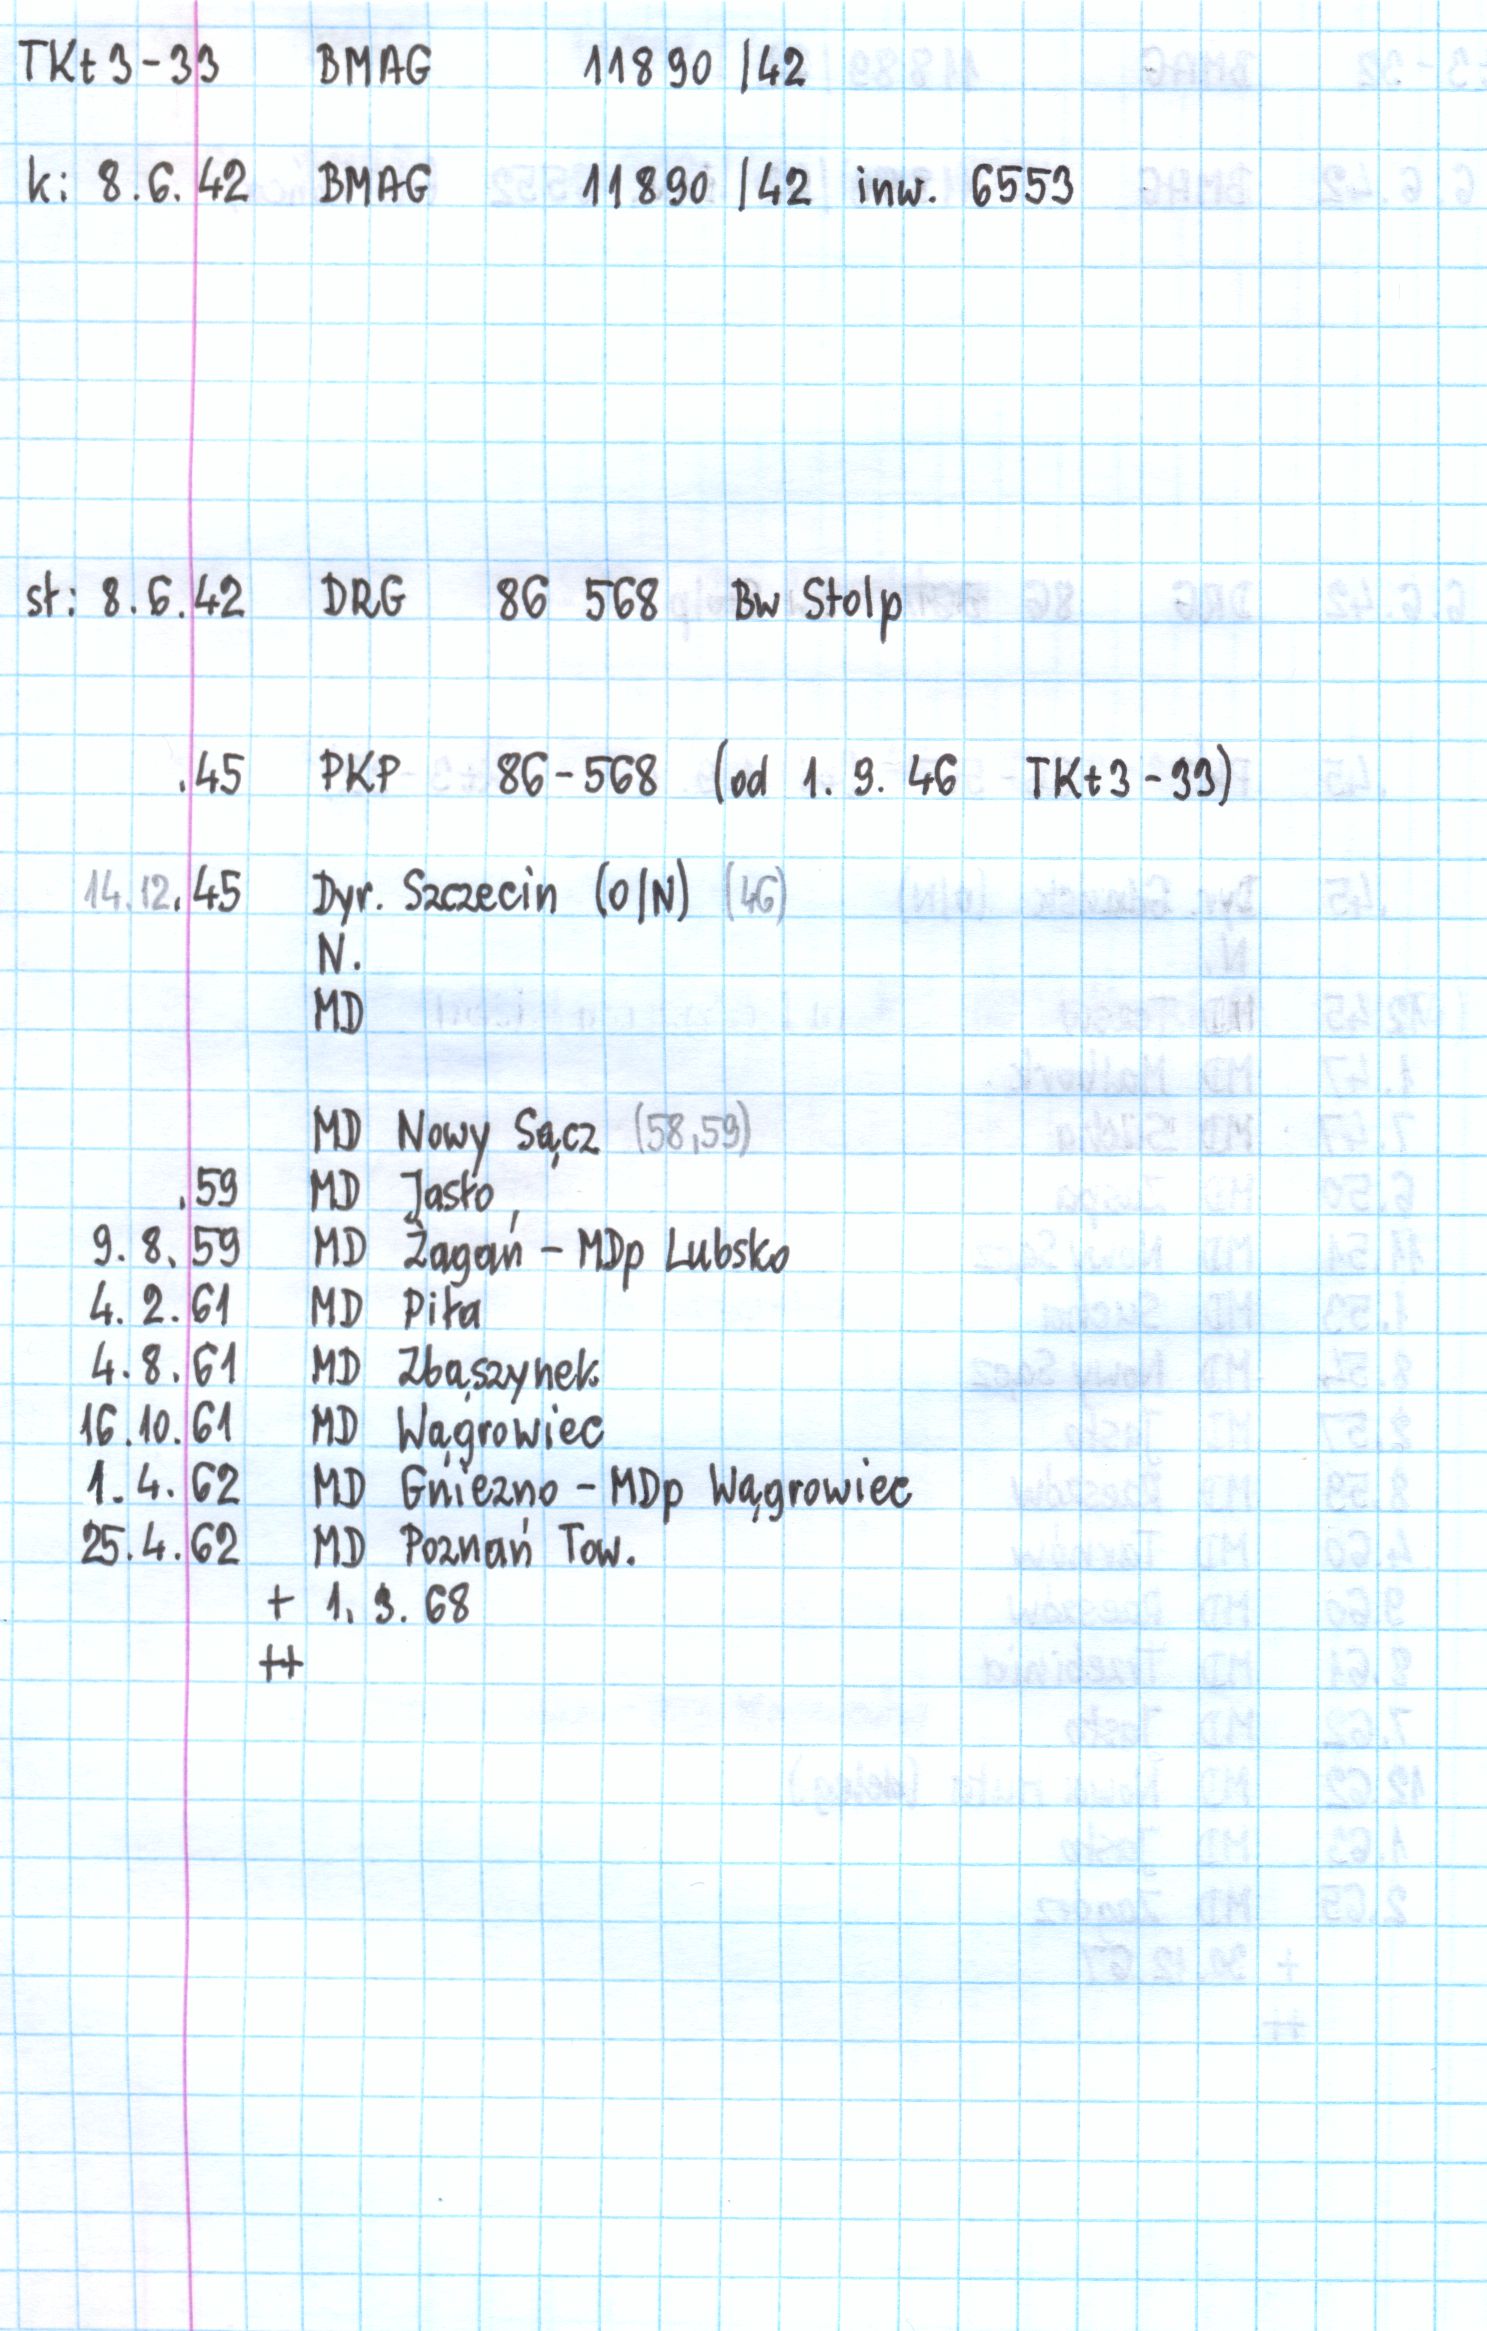 TKt3-33 BMAG 11890/42
k: 8.6.42 BMAG 11890/42 inw. 6553
st: 8.6.42 DRG 86 568 Bw Stolp
.45 PKP 86-568 (od 1.9.46 TKt3-33)
14.12.45 Dyr. Szczecin (O/N) (46)
N.
MD
MD Nowy Sącz (58,59)
.59 MD Jasło
9.8.59 MD Żagań - MDp Lubsko
4.2.61 MD Piła
4.8.61 MD Zbąszynek
16.10.61 MD Wągrowiec
1.4.62 MD Gniezno - MDp Wągrowiec
25.4.62 MD Poznań Tow.
+ 1.3.68
++